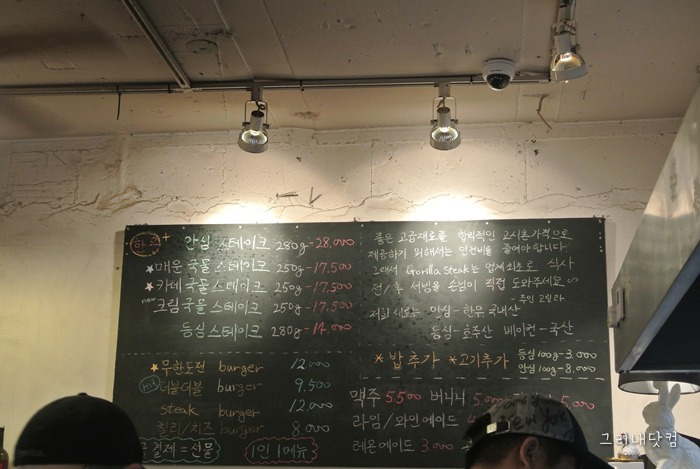 한우 안심 스테이크 280g-28,000
매운 국물 스테이크 250g-17,500
카레 국물 스테이크 250g-17,500
new 크림 국물 스테이크 250g-17,500
등심 스테이크 280g-14,000
무한도전 burger 12,000
Hit 더블더블 burger 9,500
steak burger 12,000
칠리/치즈 burger 8,000
결제=선물 1인 1메뉴
좋은 고급재료를 합리적인 고시촌가격으로
제공하기 위해서는 인건비를 줄여야합니다
그래서 Gorilla Steak는 업계최초로 식사
전/후 서빙을 손님이 직접 도와주세요
-주인 고릴라-
저희 새우는 안심-한우 국내산
등심-호주산 베이컨-국산
*밥추가 *고기추가 등심 100g-3,000
안심 100g-8,000
맥주 5500 버니니 5,000 5,000
라임/와인에이드
레몬에이드 3,000
New York
그리내닷컴